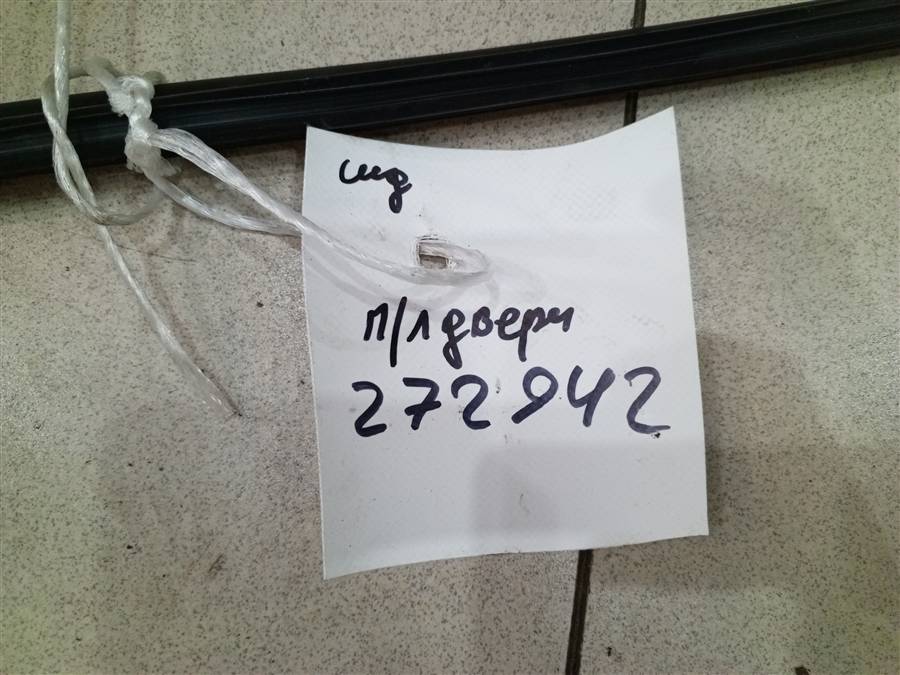 шд
п/л двери
272942